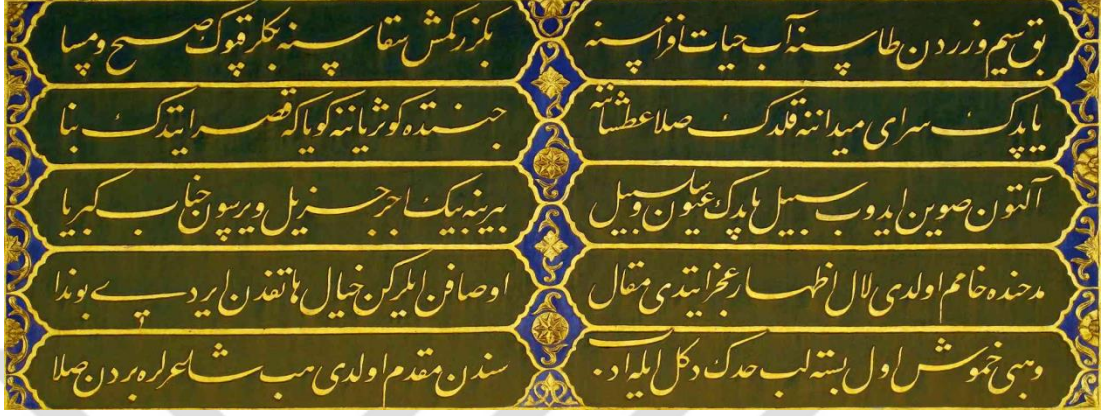 بق سیم وزردن طاسنه آب حیات افزاسنه بکزر کمش سقاسنه بکلر قپوک صبح ومسا
یاپدک سرای میداننه قلدک صلا عطشاننه جنتده کوثر یاننه کویا که قصر ایتدک بنا
آلتون صوین ایدوب سبیل یاپدک عیون وسلسبیل بیرینه بیک اجر جزیل ویرسون جناب کبریا
مدحنده خامم اولدی لال اظهار عجز ایتدی مقال اوصافن ایلرکن خیال هاتفدن ایردی بو ندا
وهبی خموش اول بسته لب حدک دکل ایله ادب سندن مقدم اولدی هب شاعرلره بردن صلا